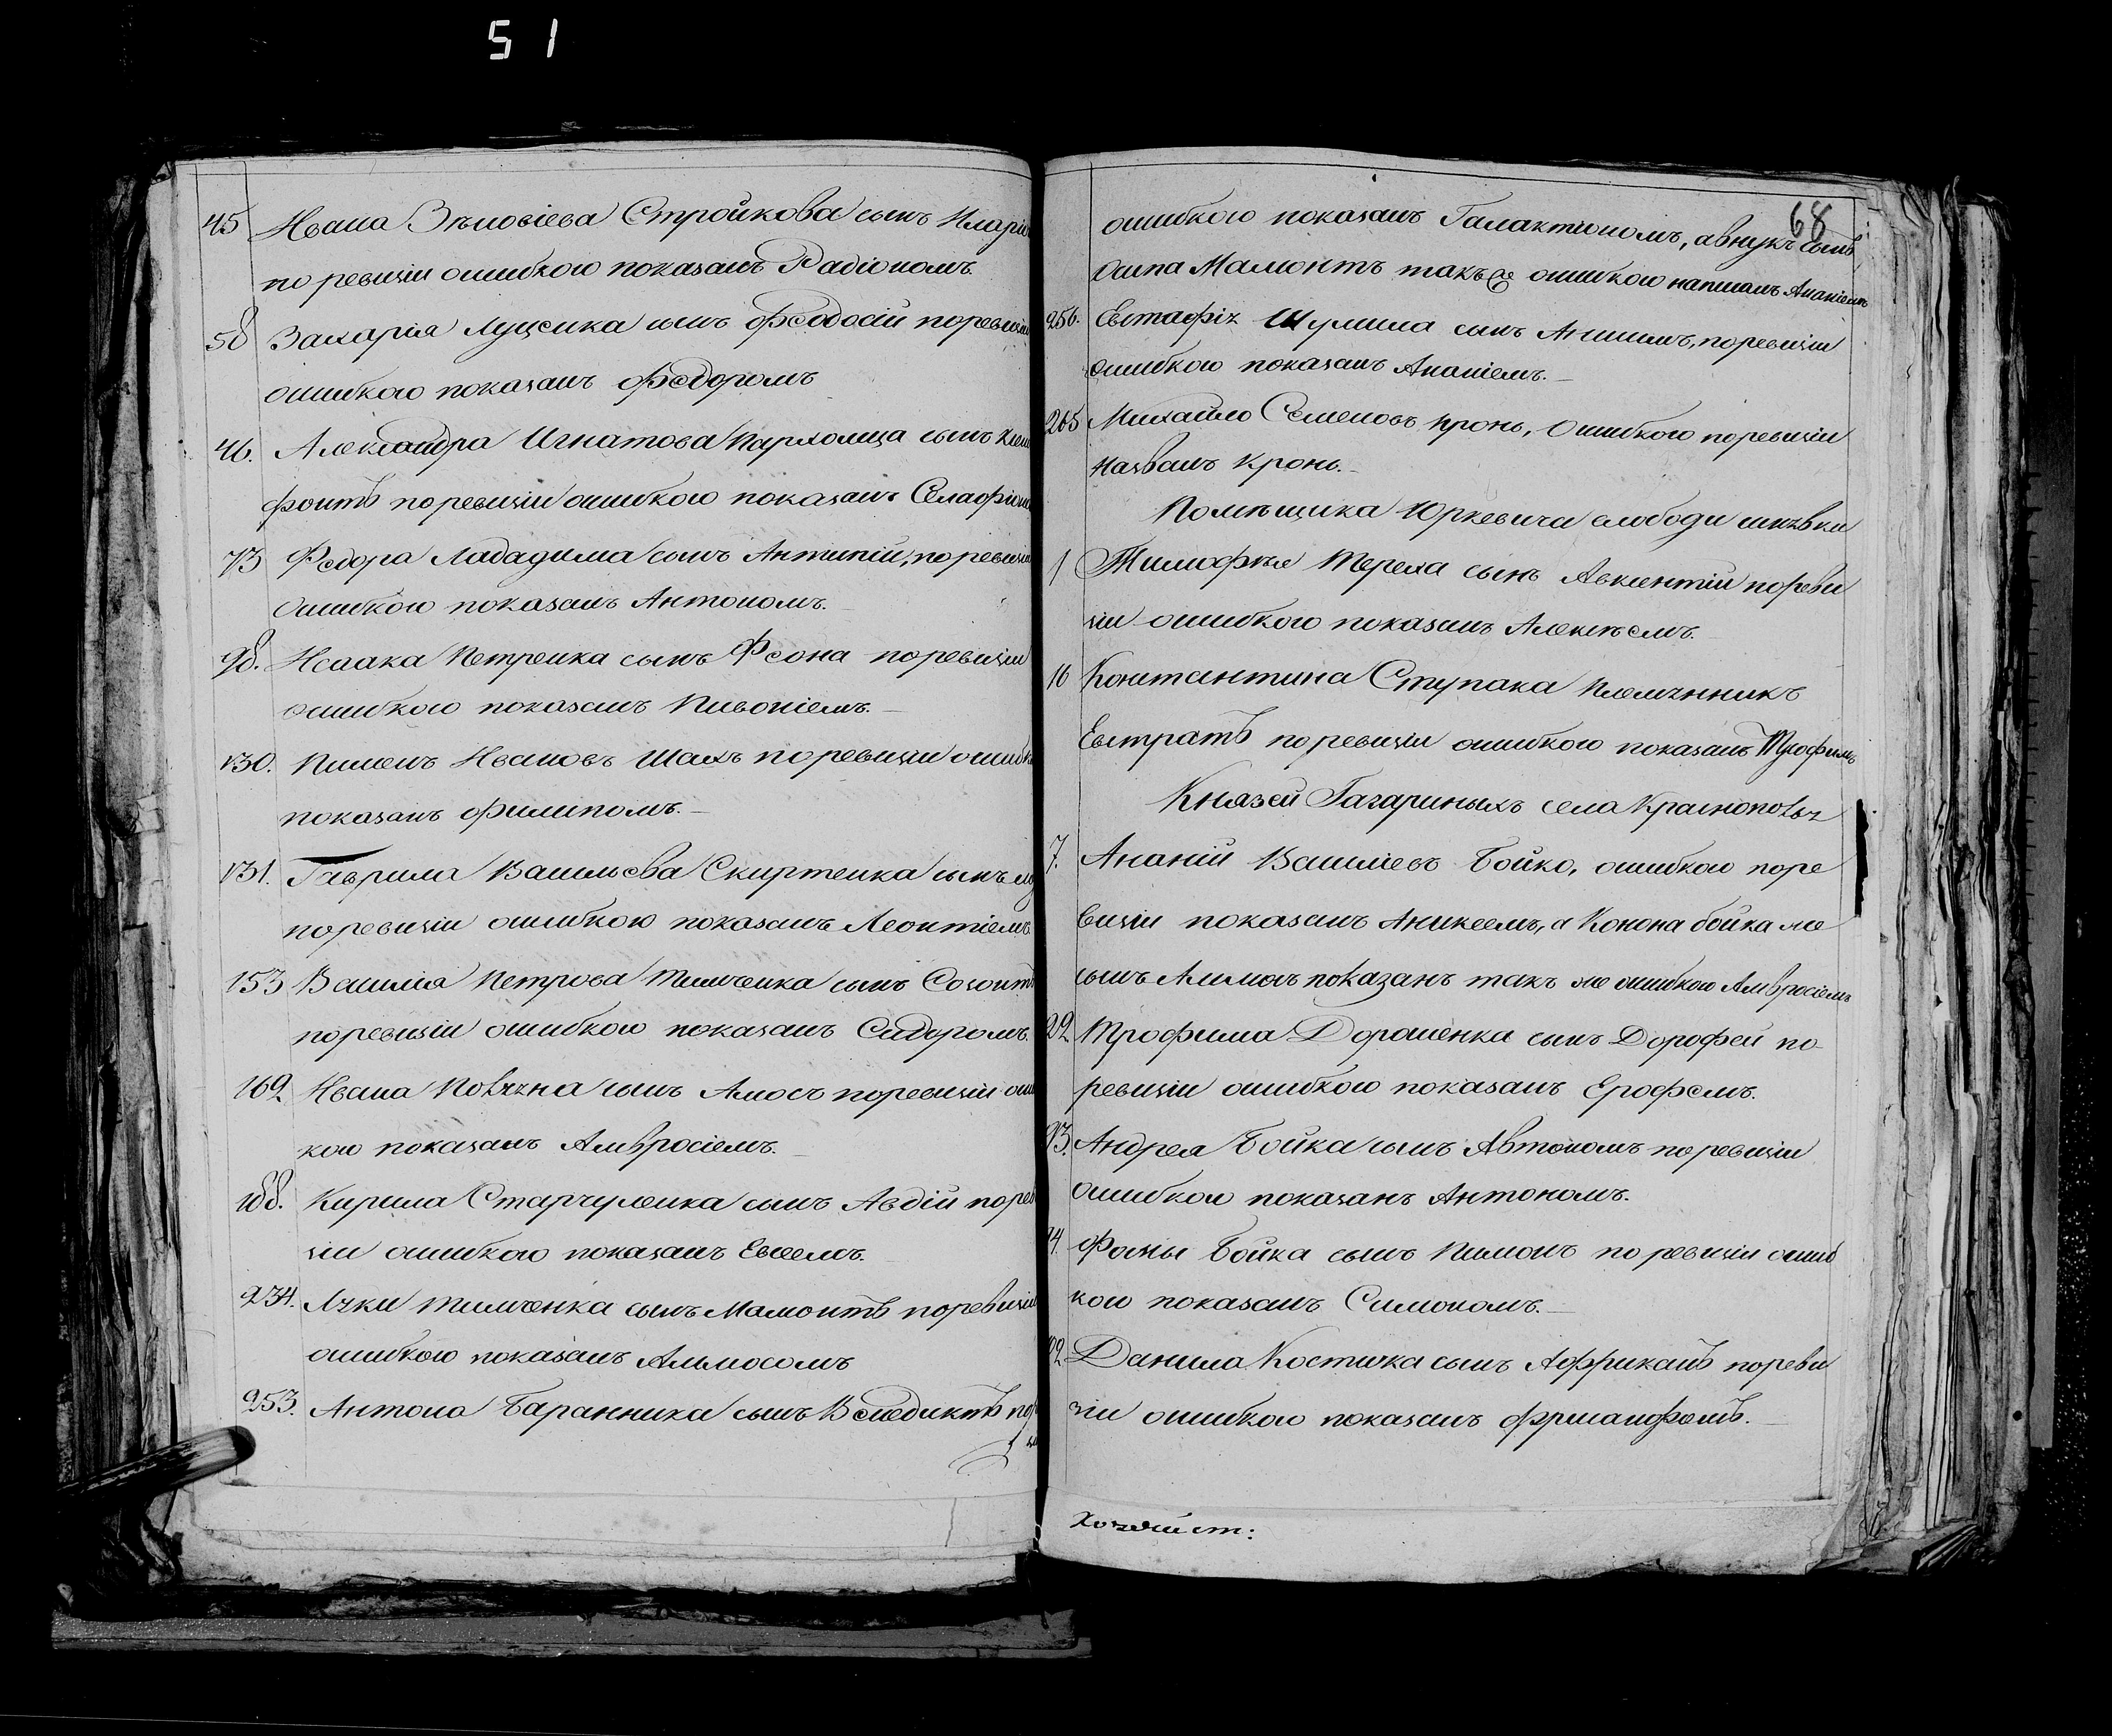 51
45 Ивана Зѣновіева Стройкова сынъ Иларі
по ревизіи ошибкою показанъ Радіономъ.
58 Захарія Луценка сынъ Феодосій по ревизіи
ошибкою показанъ Федоромъ
46. Александра Игнатова Пархомца сынъ
фонтъ по ревизіи ошибкою показанъ
73 Федора сынъ Антипій, по ревизіи
ошибкою показанъ Антономъ.
98. Исаака Петренка сынъ Феона по ревизіи
ошибкою показанъ
130. Пименъ Ивановъ Шахъ по ревизіи ошибк
показанъ Филипомъ.
131. Гаврила Васильева Скиртенка сынъ
по ревизіи ошибкою показанъ Леонтіемъ
153 Василія Петрова Тимченка сынъ Созонтъ
по ревизіи ошибкою показанъ Сидоромъ.
169 Ивана сынъ Амосъ по ревизіи ош
кою показанъ Амвросіемъ.
188. Кирила Старчуленка сынъ Авдій по рев
зіи ошибкою показанъ Евсеемъ.
234. Луки Тимченка сынъ Мамонтъ по ревизіи
ошибкою показанъ
253. Антона Баранника сынъ Венедиктъ по
68
ошибкою показанъ Галактіономъ, а внукъ сынъ
Осипа Мамонтъ такъ же ошибкою написанъ Ананіемъ
256. Евстафія Шулима сынъ по ревизіи
ошибкою показанъ Ананіемъ.
265 Михайло Семеновъ ошибкою по ревизіи
названъ Кронь.
Помѣщика Юркевича слободи
1 Тимофѣя Тереха сынъ Авксентій по реви
зіи ошибкою показанъ Алексѣемъ.
16 Константина Ступака племянникъ
Евстратъ по ревизіи ошибкою показанъ Трофимъ
Князей Гагариныхъ села Краснополья
7. Ананій Василіевъ Бойко, ошибкою по ре
визіи показанъ Аникеемъ, а Конона Бойка же
сынъ показанъ такъ же ошибкою Амвросіемъ
22 Трофима Дорошенка сынъ Дорофей по
ревизіи ошибкою показанъ Ерофеемъ.
93. Андрея Бойка сынъ Автономъ по ревизіи
ошибкою показанъ Антономъ.
94. Фомы Бойка сынъ по ревизіи ошиб
кою показанъ Симономъ.
02 Данила сынъ Аффриканъ по реви
зіи ошибкою показанъ